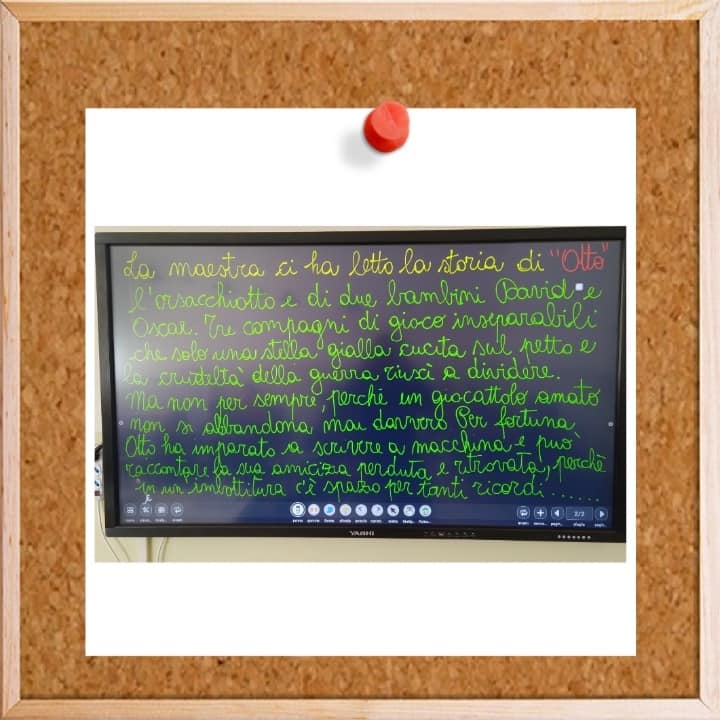 La maestra ci ha letto la storia di "Otto"
l'orsacchiotto e di due bambini David e
Oscar. Tre compagni di gioco inseparabili
che solo una stella gialla cucita sul petto e
la crudeltà della guerra riuscì a dividere.
Ma non per sempre, perché un giocattolo amato
non si abbandona mai davvero Per fortuna
Otto ha imparato a scrivere a macchina e può
raccontare la sua amicizia perduta e ritrovata, perchè
in un'imbottitura c'è spazio per tanti ricordi......
2/2
YASHI